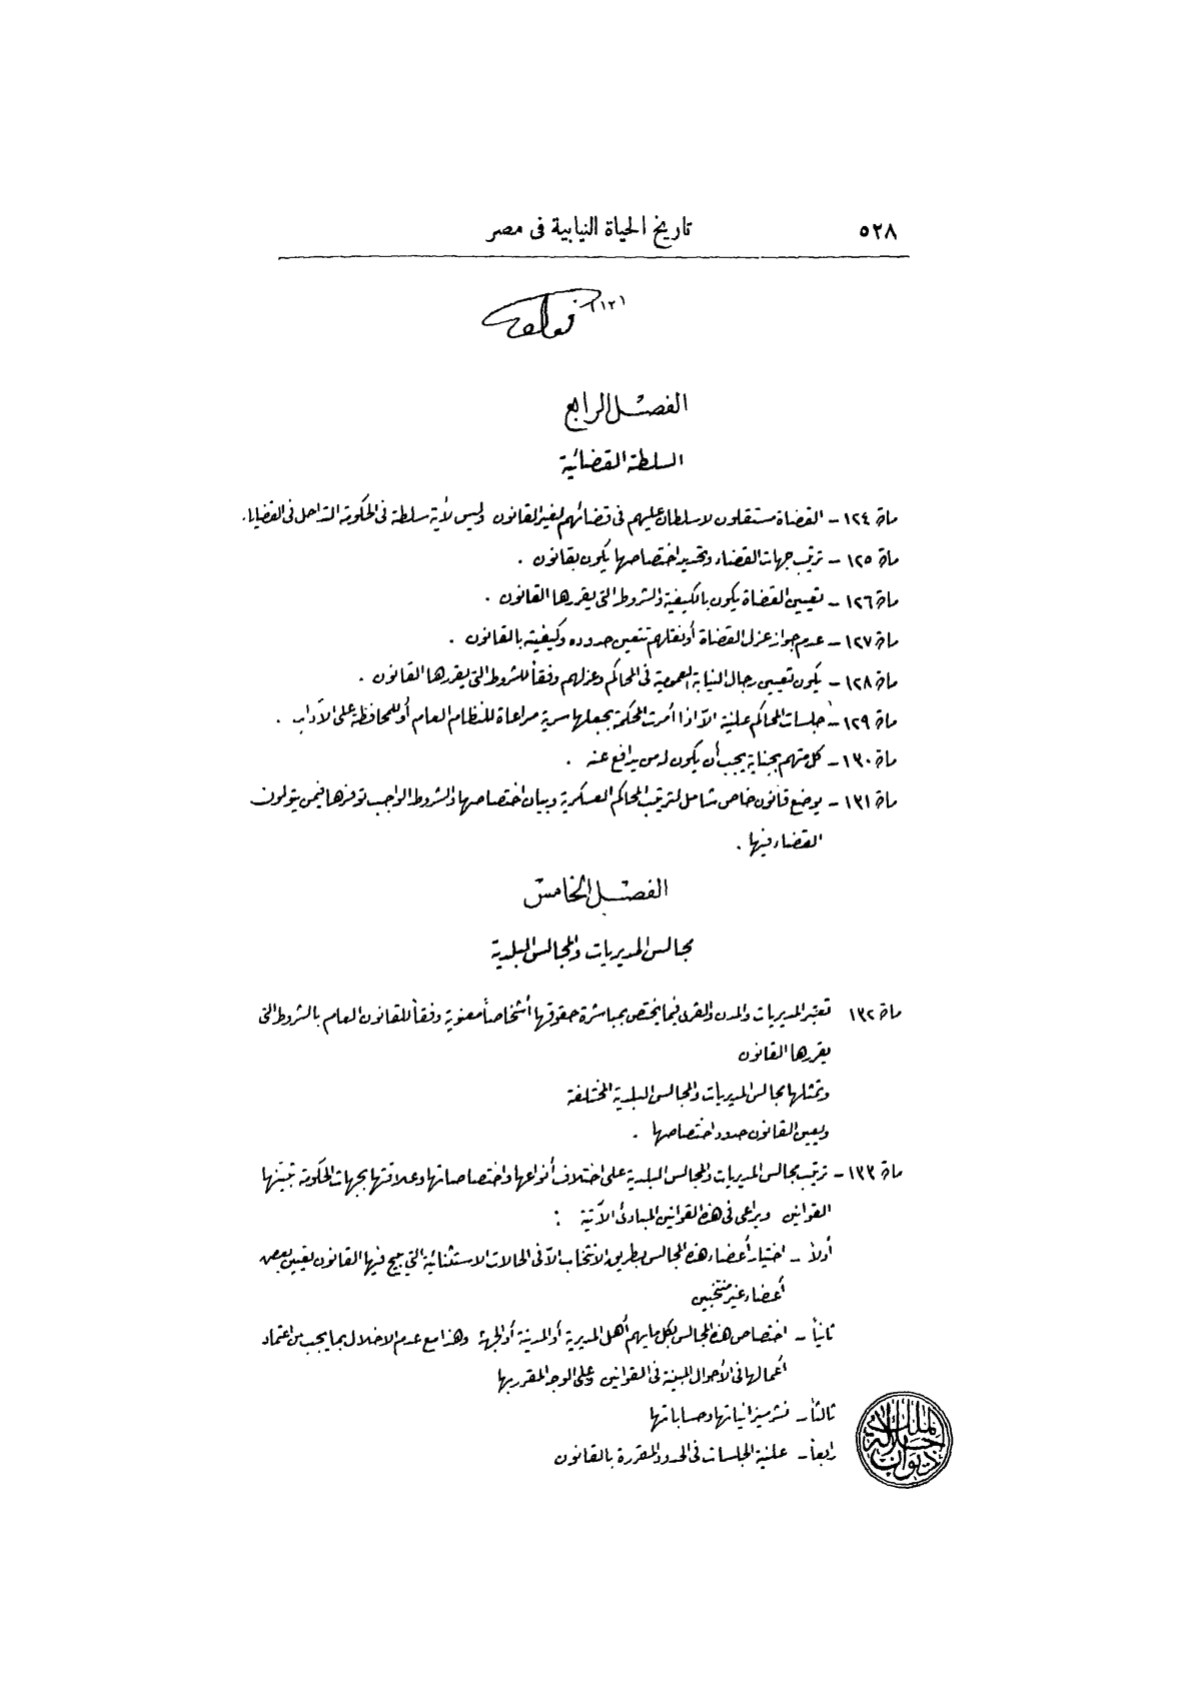 ٥٢٨
تاريخ الحياة النيابية فى مصر
(١٢)
الفصل الرابع
السلطة القضائية
مادة ١٢٤ – القضاة مستقلون لا سلطان عليهم فى قضائهم لغير القانون وليس لأية سلطة فى الحكومة التداخل فى القضايا .
مادة ١٢٥ – ترتيب جهات القضاء وتحديد اختصاصها يكون بقانون .
مادة ١٢٦ – تعيين القضاة يكون بالكيفية والشروط التى يقررها القانون .
مادة ١٢٧ – عدم جواز عزل القضاة أو نقلهم تتعين حدوده وكيفيته بالقانون .
مادة ١٢٨ – يكون تعيين رجال النيابة العمومية فى المحاكم وعزلهم وفقاً للشروط التى يقررها القانون .
مادة ١٢٩ – جلسات المحاكم علنية الّا اذا أمرت المحكمة بجعلها سرية مراعاة للنظام العام أو للمحافظة على الآداب .
مادة ١٣٠ – كل متهم بجناية يجب أن يكون له من يدافع عنه .
مادة ١٣١ – يوضع قانون خاص شامل لترتيب المحاكم العسكرية وبيان اختصاصها والشروط الواجب توفرها فيمن يتولون
القضاء فيها .
الفصل الخامس
مجالس المديريات والمجالس البلدية
مادة ١٣٢ تعتبر المديريات والمدن والقرى فيما يختص بمباشرة حقوقها أشخاصاً معنوية وفقاً للقانون العام بالشروط التى
يقررها القانون
وتمثلها مجالس المديريات والمجالس البلدية المختلفة
ويعين القانون حدود اختصاصها .
مادة ١٣٣ – ترتيب مجالس المديريات والمجالس البلدية على اختلاف أنواعها واختصاصاتها وعلاقتها بجهات الحكومة تبينها
القوانين ويراعى فى هذه القوانين المبادئ الآتية :
أولاً – اختيار أعضاء هذه المجالس بطريق الانتخاب الّا فى الحالات الاستثنائية التى يبيح فيها القانون تعيين بعض
أعضاء غير منتخبين
ثانياً – اختصاص هذه المجالس بكل ما يهم أهل المديرية أو المدينة أو الجهة وهذا مع عدم الاخلال بما يجب من اعتماد
أعمالها فى الأحوال المبينة فى القوانين وعلى الوجه المقرر بها
ثالثاً – نشر ميزانياتها وحساباتها
رابعاً – علنية الجلسات فى الحدود المقررة بالقانون
ديوان جلالة الملك